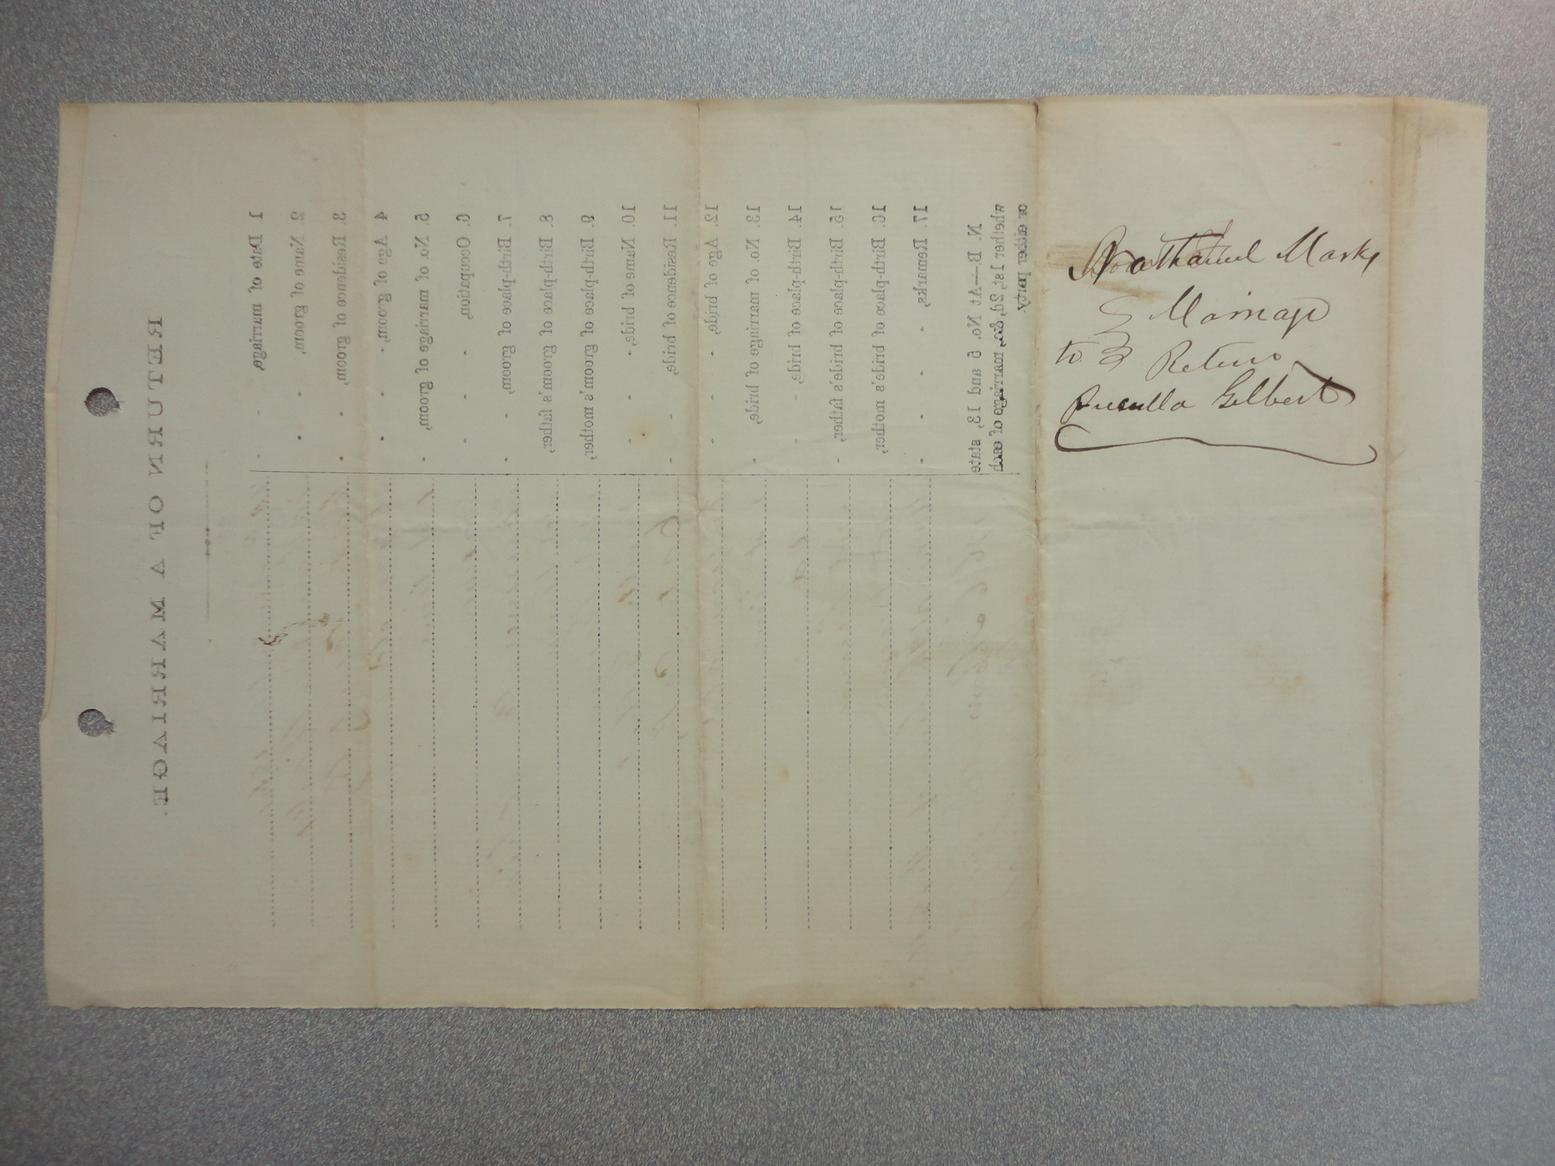 Nathaniel Marks
Marriage
to
Return
Priscilla Gilbert
RETURN OF A MARRIAGE.
1. Date of marriage,
2. Name of groom,
3. Residence of groom,
4. Age of groom,
5. No. of marriage of groom,
6. Occupation,
7. Birth-place of groom,
8. Birth-place of groom's father,
9. Birth-place of groom's mother,
10. Name of bride,
11. Residence of bride,
12. Age of bride,
13. No. of marriage of bride,
14. Birth-place of bride,
15. Birth-place of bride's father,
16. Birth-place of bride's mother,
17. Remarks,
N. B—At No. 5 and 13, state
whether 1st, 2d, &c., marriage of each
or either party.